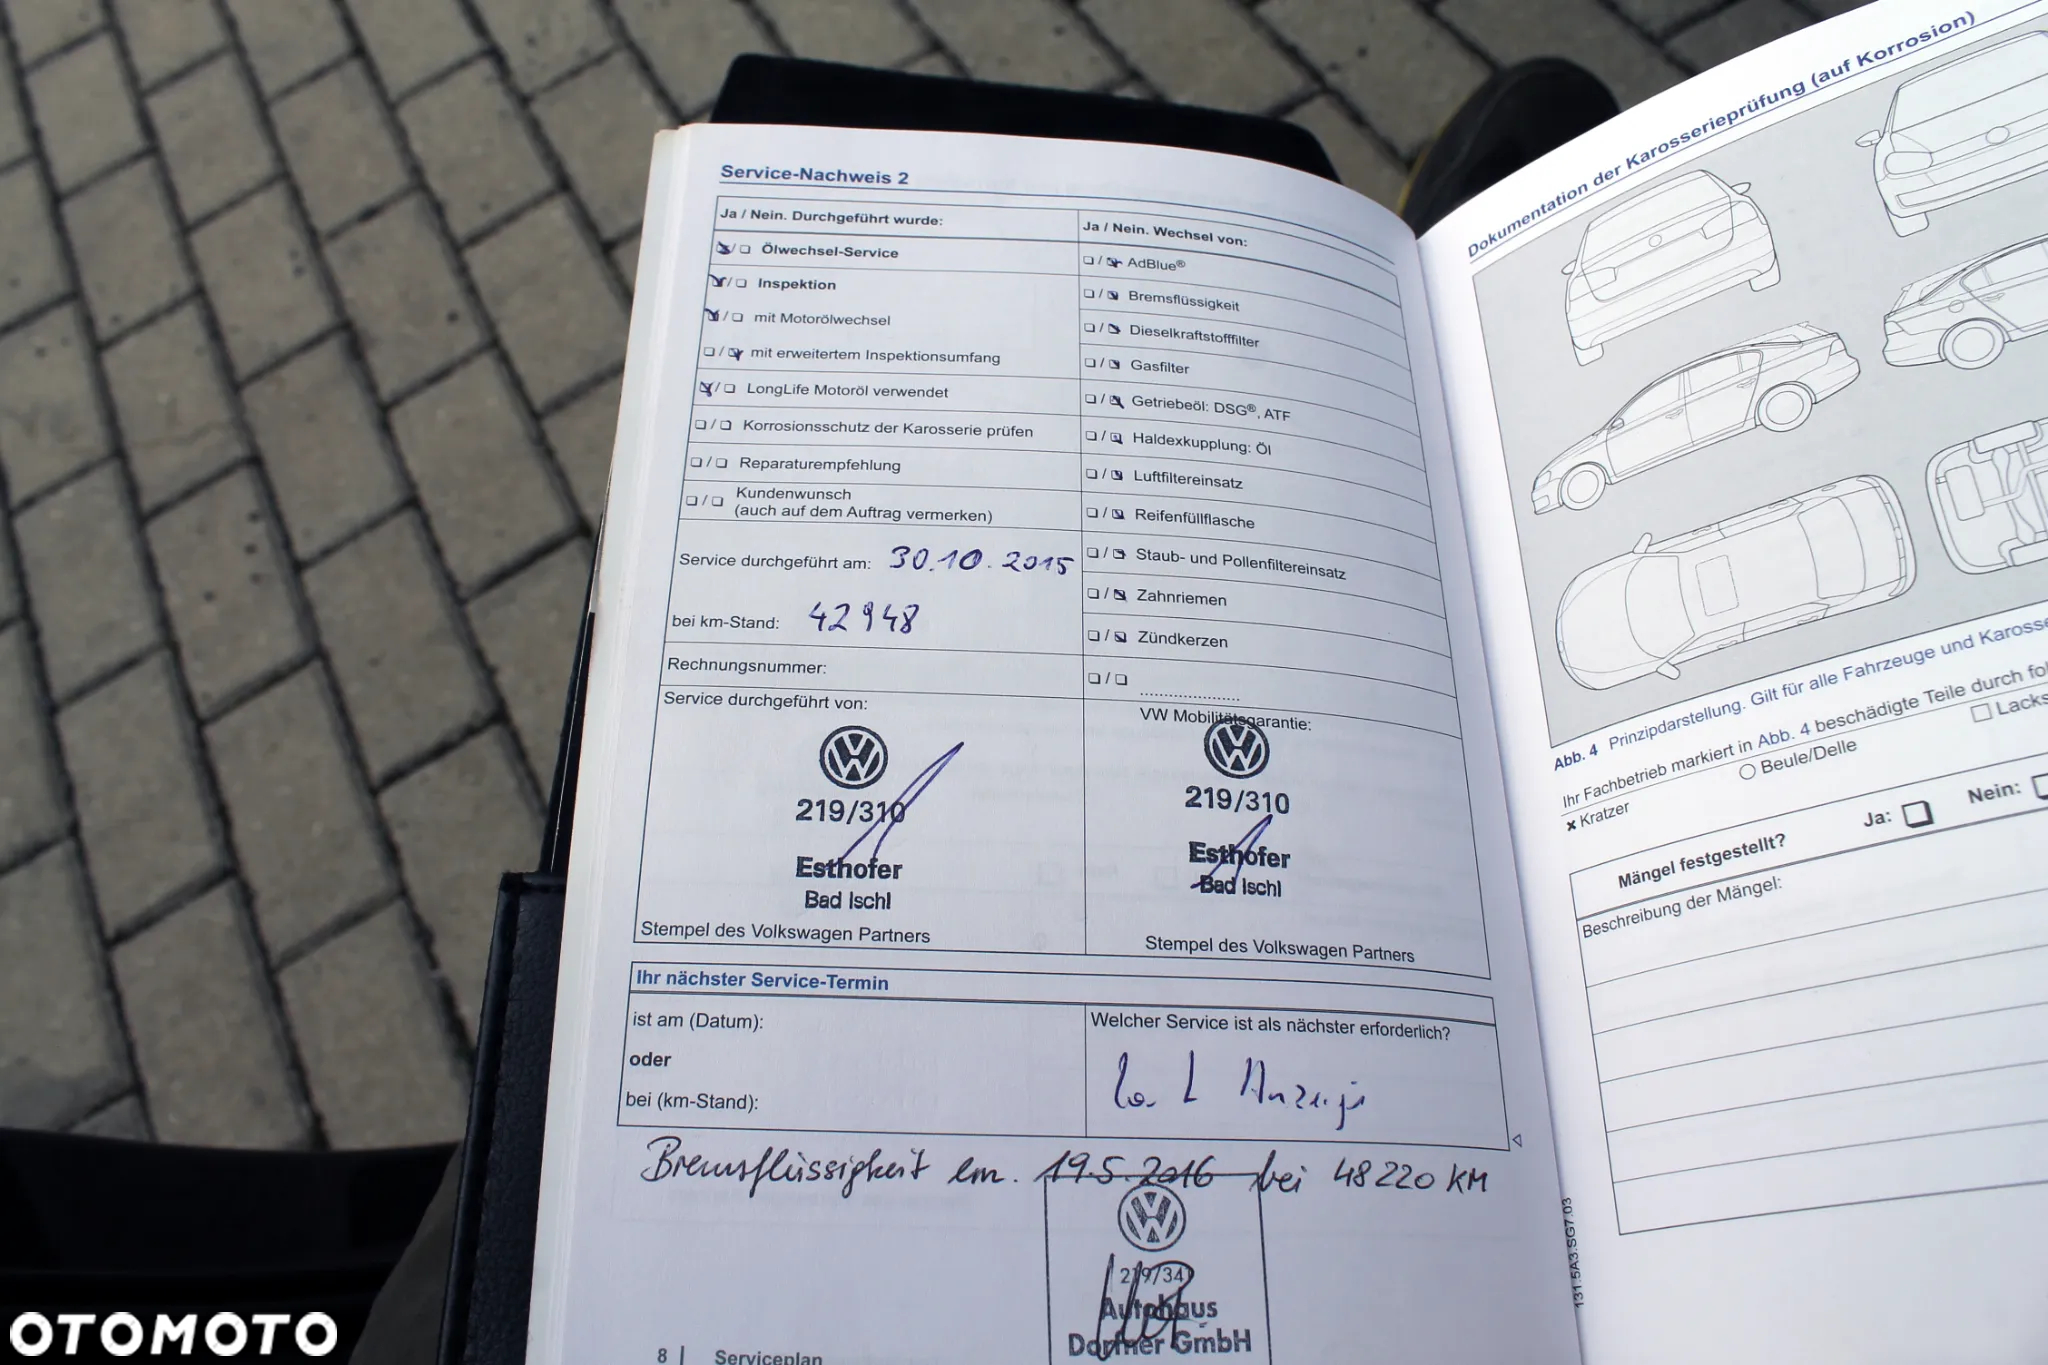 Service-Nachweis 2
Ja / Nein. Durchgeführt wurde:
Ölwechsel-Service
Inspektion
mit Motorölwechsel
mit erweitertem Inspektionsumfang
LongLife Motoröl verwendet
Korrosionsschutz der Karosserie prüfen
Reparaturempfehlung
Kundenwunsch
(auch auf dem Auftrag vermerken)
Service durchgeführt am: 30.10.2015
bei km-Stand: 42948
Rechnungsnummer:
Service durchgeführt von:
219/310
Esthofer
Bad Ischl
Stempel des Volkswagen Partners
Ja / Nein. Wechsel von:
AdBlue®
Bremsflüssigkeit
Dieselkraftstofffilter
Gasfilter
Getriebeöl: DSG®, ATF
Haldexkupplung: Öl
Luftfiltereinsatz
Reifenfüllflasche
Staub- und Pollenfiltereinsatz
Zahnriemen
Zündkerzen
VW Mobilitätsgarantie:
219/310
Esthofer
Bad Ischl
Stempel des Volkswagen Partners
Ihr nächster Service-Termin
ist am (Datum):
oder
bei (km-Stand):
Welcher Service ist als nächster erforderlich?
Anzeige
Bremsflüssigkeit 19.5.2016 bei 48220 KM
219/341
Autohaus
Dorfner GmbH
8 | Serviceplan
Dokumentation der Karosserieprüfung (auf Korrosion)
Abb. 4 Prinzipdarstellung. Gilt für alle Fahrzeuge und
Ihr Fachbetrieb markiert in Abb. 4 beschädigte Teile durch
× Kratzer
Beule/Delle
Mängel festgestellt?
Ja:
Nein:
Beschreibung der Mängel:
131.5A3.SG7.03
OTOMOTO